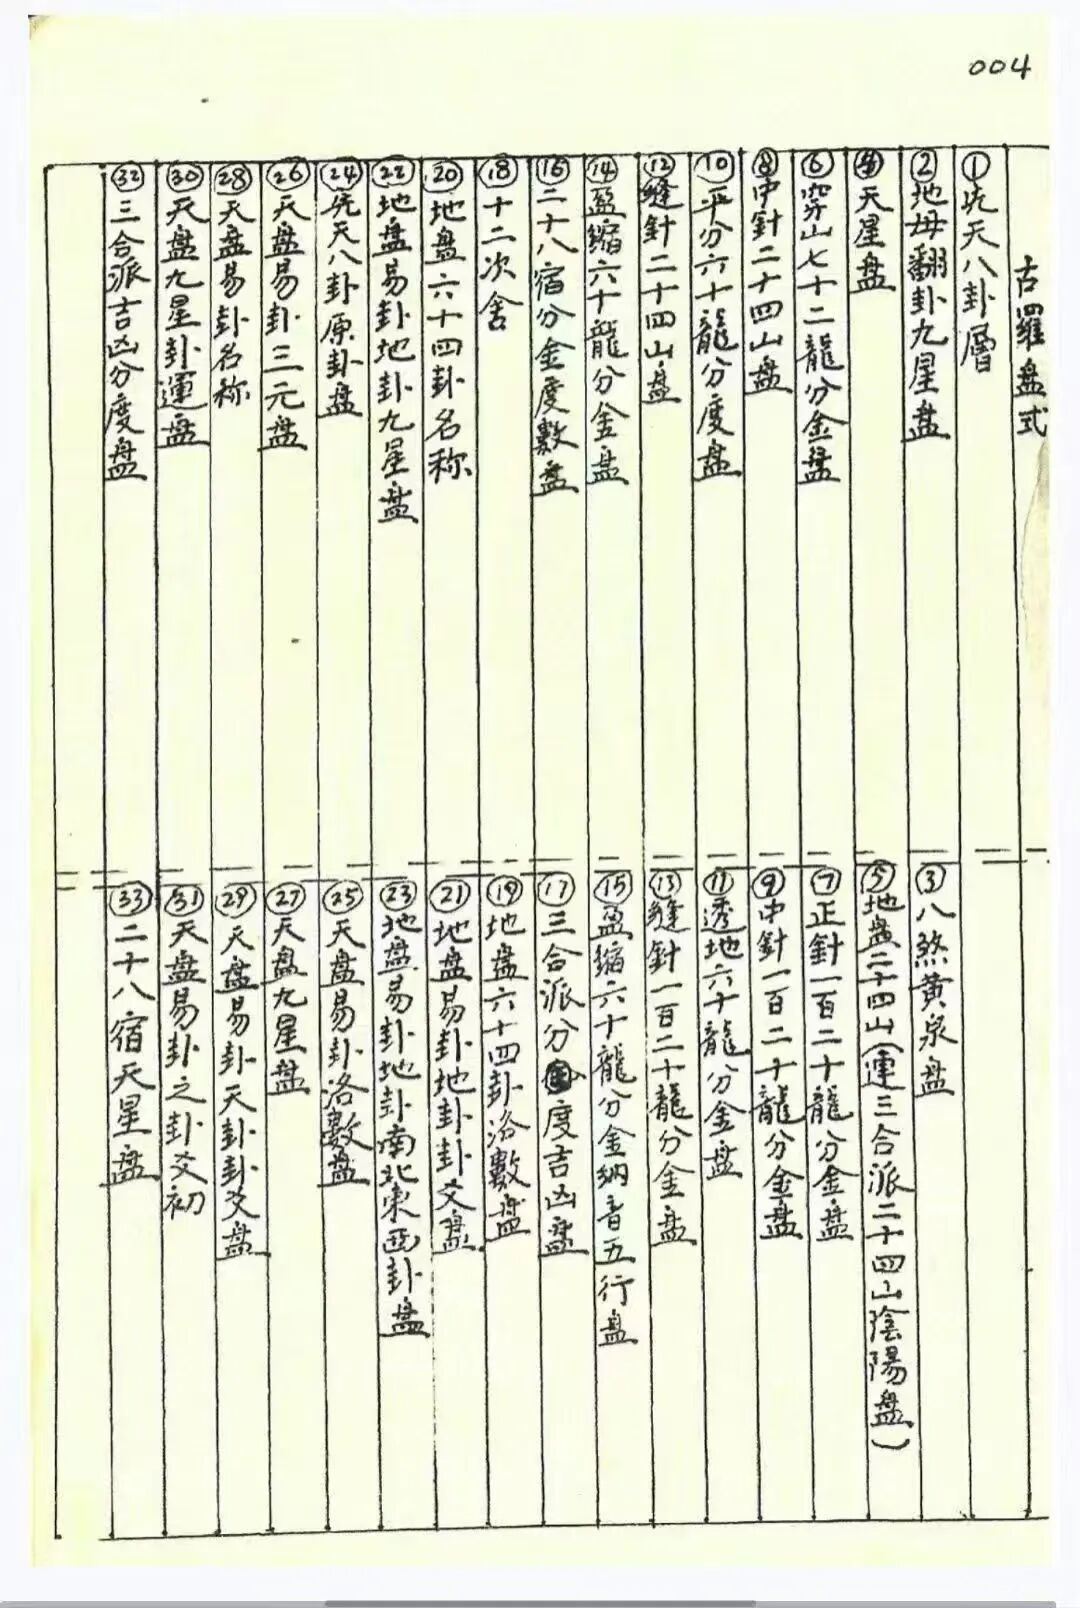 004
古羅盤式
①先天八卦層
②地母翻卦九星盤
③八煞黄泉盘
④天星盘
⑤地盘二十四山(運三合派二十四山陰陽盘)
⑥穿山七十二龍分金盘
⑦正針一百二十龍分金盘
⑧中針二十四山盘
⑨中針一百二十龍分金盘
⑩平分六十龍分度盘
⑪透地六十龍分金盘
⑫縫針二十四山盘
⑬縫針一百二十龍分金盘
⑭盈縮六十龍分金盘
⑮盈縮六十龍分金纳音五行盘
⑯二十八宿分金度數盘
⑰三合派分度吉凶盘
⑱十二次舍
⑲地盘六十四卦洛數盘
⑳地盘六十四卦名称
㉑地盘易卦地卦卦爻盘
㉒地盘易卦地卦九星盘
㉓地盘易卦地卦南北東西卦盘
㉔先天八卦原卦盘
㉕天盘易卦洛數盘
㉖天盘易卦三元盘
㉗天盘九星盘
㉘天盘易卦名称
㉙天盘易卦天卦卦爻盘
㉚天盘九星卦運盘
㉛天盘易卦之卦爻初
㉜三合派吉凶分度盘
㉝二十八宿天星盘